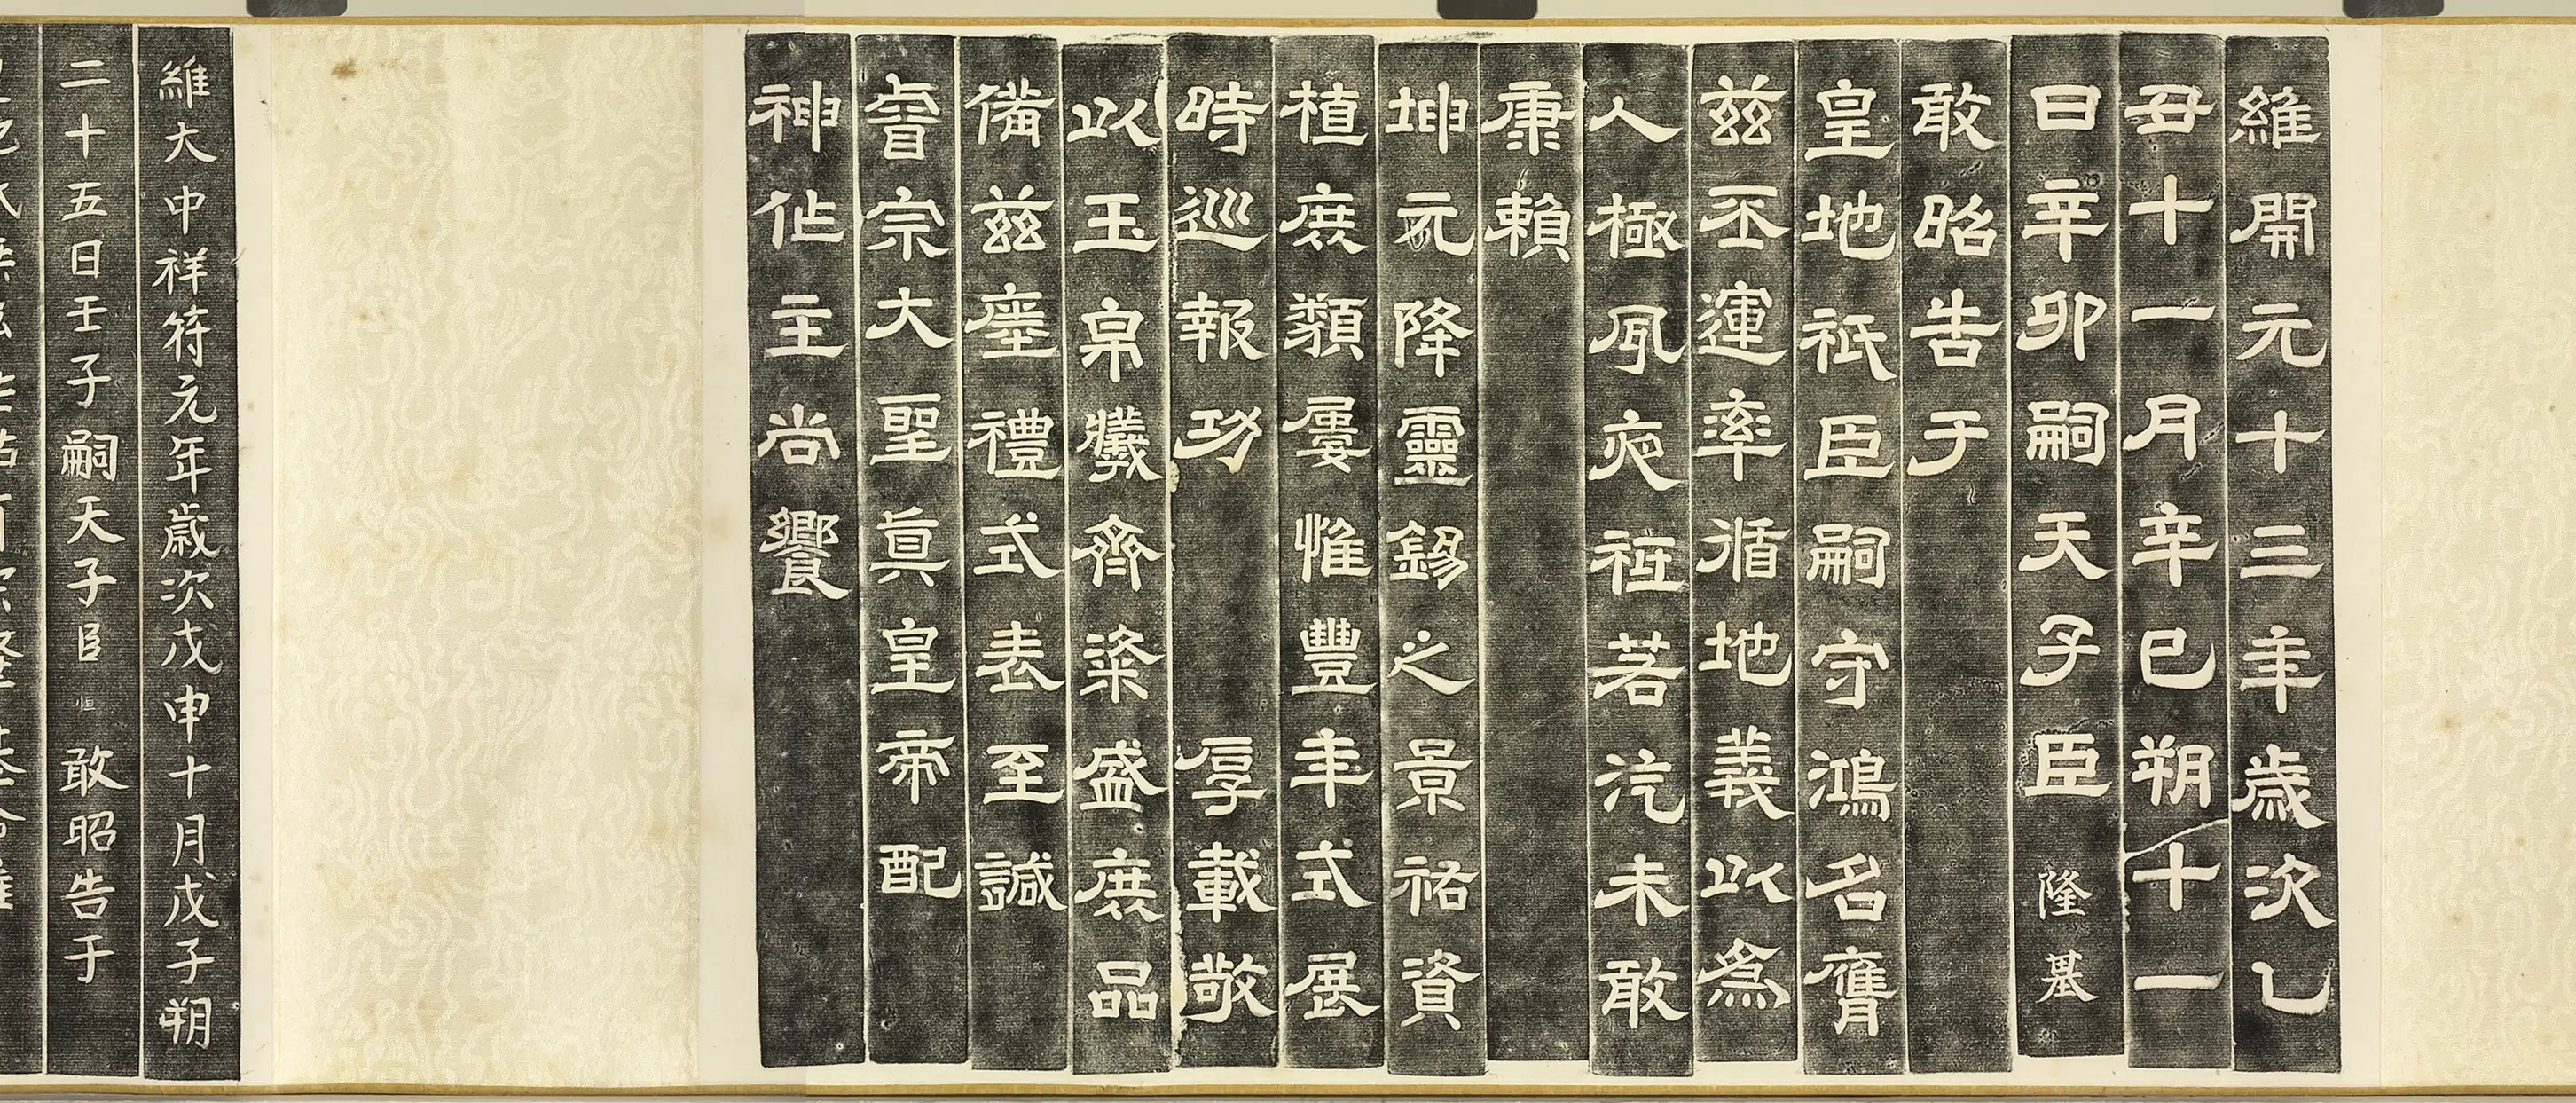 維開元十三年歲次乙
丑十一月辛巳朔十一
日辛卯嗣天子臣隆基
敢昭告于
皇地祇臣嗣守鴻名膺
茲丕運率循地義以為
人極夙夜祗若汔未敢
康賴
坤元降靈錫之景祐資
植庶類屢惟豐年式展
時巡報功厚載敬
以玉帛犧齊粢盛庶品
備茲瘞禮式表至誠
睿宗大聖真皇帝配
神作主尚饗
維大中祥符元年歲次戊申十月戊子朔
二十五日壬子嗣天子臣恒敢昭告于